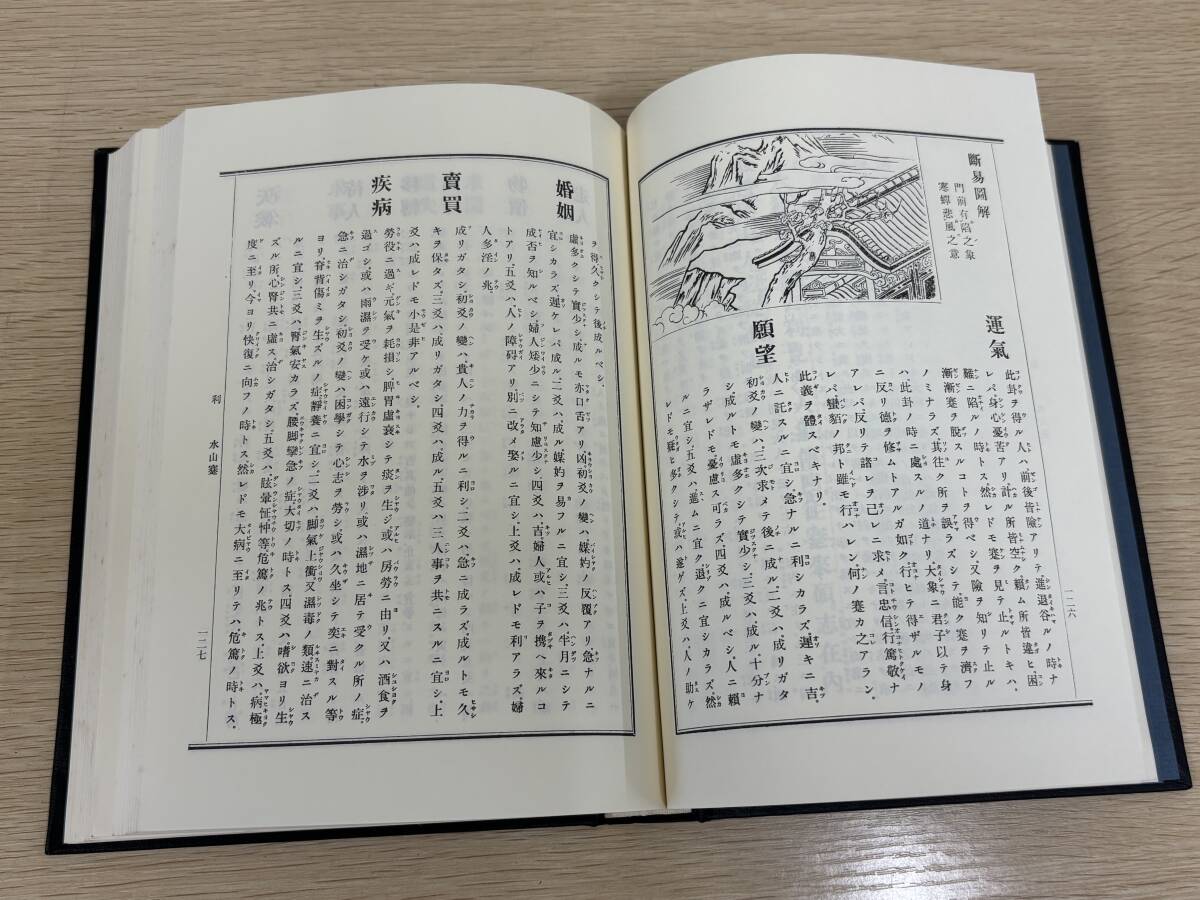 斷易圖解
門前有陷之象
寒蟬悲風之意
運氣
此卦ヲ得ル人ハ前後皆險アリテ進退谷ルノ時ナ
レバ身心憂苦アリ計ル所皆空ク賴ム所皆違ヒ困
難ニ陷ルノ時トス然レドモ蹇ヲ見テ止ルトキハ、
漸漸蹇ヲ脱スルコトヲ得ベシ又險ヲ知リテ止ル
ノミナラズ其往ク所ヲ誤ラズシテ、能ク蹇ヲ濟フ
ハ此卦ノ時ニ處スルノ道ナリ大象ニ君子以テ身
ニ反リ德ヲ修ムトアルガ如ク行ヒテ得ザルモノ
アレバ反リテ諸レヲ己レニ求メ、言忠信行篤敬ナ
レバ蠻貊ノ邦ト雖モ行ハレン、何ノ蹇カ之アラン。
此義ヲ體スベキナリ。
願望
人ニ託スルニ宜シ、急ナルニ利シカラズ、遲キニ吉。
初爻ノ變ハ、三次求メテ後ニ成ル、二爻ハ、成リガタ
シ、成ルトモ虛多クシテ實少シ、三爻ハ、成ル、十分ナ
ラザレドモ憂慮ス可ラズ、四爻ハ、成ルベシ、人ニ賴
ルニ宜シ、五爻ハ、進ムニ宜ク退クニ宜シカラズ、然
レドモ疑ヒ多クシテ、或ハ遂ゲズ、上爻ハ、人ノ助ケ
一二六
ヲ得、久クシテ後成ルベシ。
婚姻
虛多クシテ實少シ、成ルモ亦口舌アリ凶、初爻ノ變ハ、媒妁ノ反覆アリ、急ナルニ
宜シカラズ、遲ケレバ成ル、二爻ハ、成ル、媒妁ヲ易フルニ宜シ、三爻ハ、半月ニシテ
成否ヲ知ルベシ、婦人矮少ニシテ知慮少シ、四爻ハ、吉、婦人或ハ子ヲ携ヘ來ルコ
トアリ、五爻ハ、人ノ障碍アリ、別ニ改メ娶ルニ宜シ、上爻ハ、成レドモ利アラズ、婦
人多淫ノ兆。
賣買
成リガタシ、初爻ノ變ハ、貴人ノ力ヲ得ルニ利シ、二爻ハ、急ニ成ラズ、成ルトモ久
キヲ保タズ、三爻ハ、成リガタシ、四爻ハ、成ル、五爻ハ、三人事ヲ共ニスルニ宜シ、上
爻ハ、成レドモ小是非アルベシ。
疾病
勞役ニ過ギ、元氣ヲ耗損シ、脾胃虛衰シテ痰ヲ生ジ、或ハ房勞ニ由リ、又ハ酒食ヲ
過ゴシ、或ハ雨濕ヲ受ケ、或ハ遠行シテ水ヲ渉リ、或ハ濕地ニ居テ受クル所ノ症。
急ニ治シガタシ、初爻ノ變ハ、困學シテ心志ヲ勞シ、或ハ久坐シテ奕ニ對スル等
ヨリ脊背傷ミヲ生ズルノ症、靜養ニ宜シ、二爻ハ、脚氣上衝、又濕毒ノ類、速ニ治ス
ルニ宜シ、三爻ハ、腎氣安カラズ、腰脚攣急ノ症、大切ノ時トス、四爻ハ、嗜欲ヨリ生
ズル所、心腎共ニ虛ス、治シガタシ、五爻ハ、眩暈怔忡等、危篤ノ兆トス、上爻ハ、病極
度ニ至リ、今ヨリ快復ニ向フノ時トス、然レドモ大病ニ至リテハ、危篤ノ時トス。
利 水山蹇
一二七